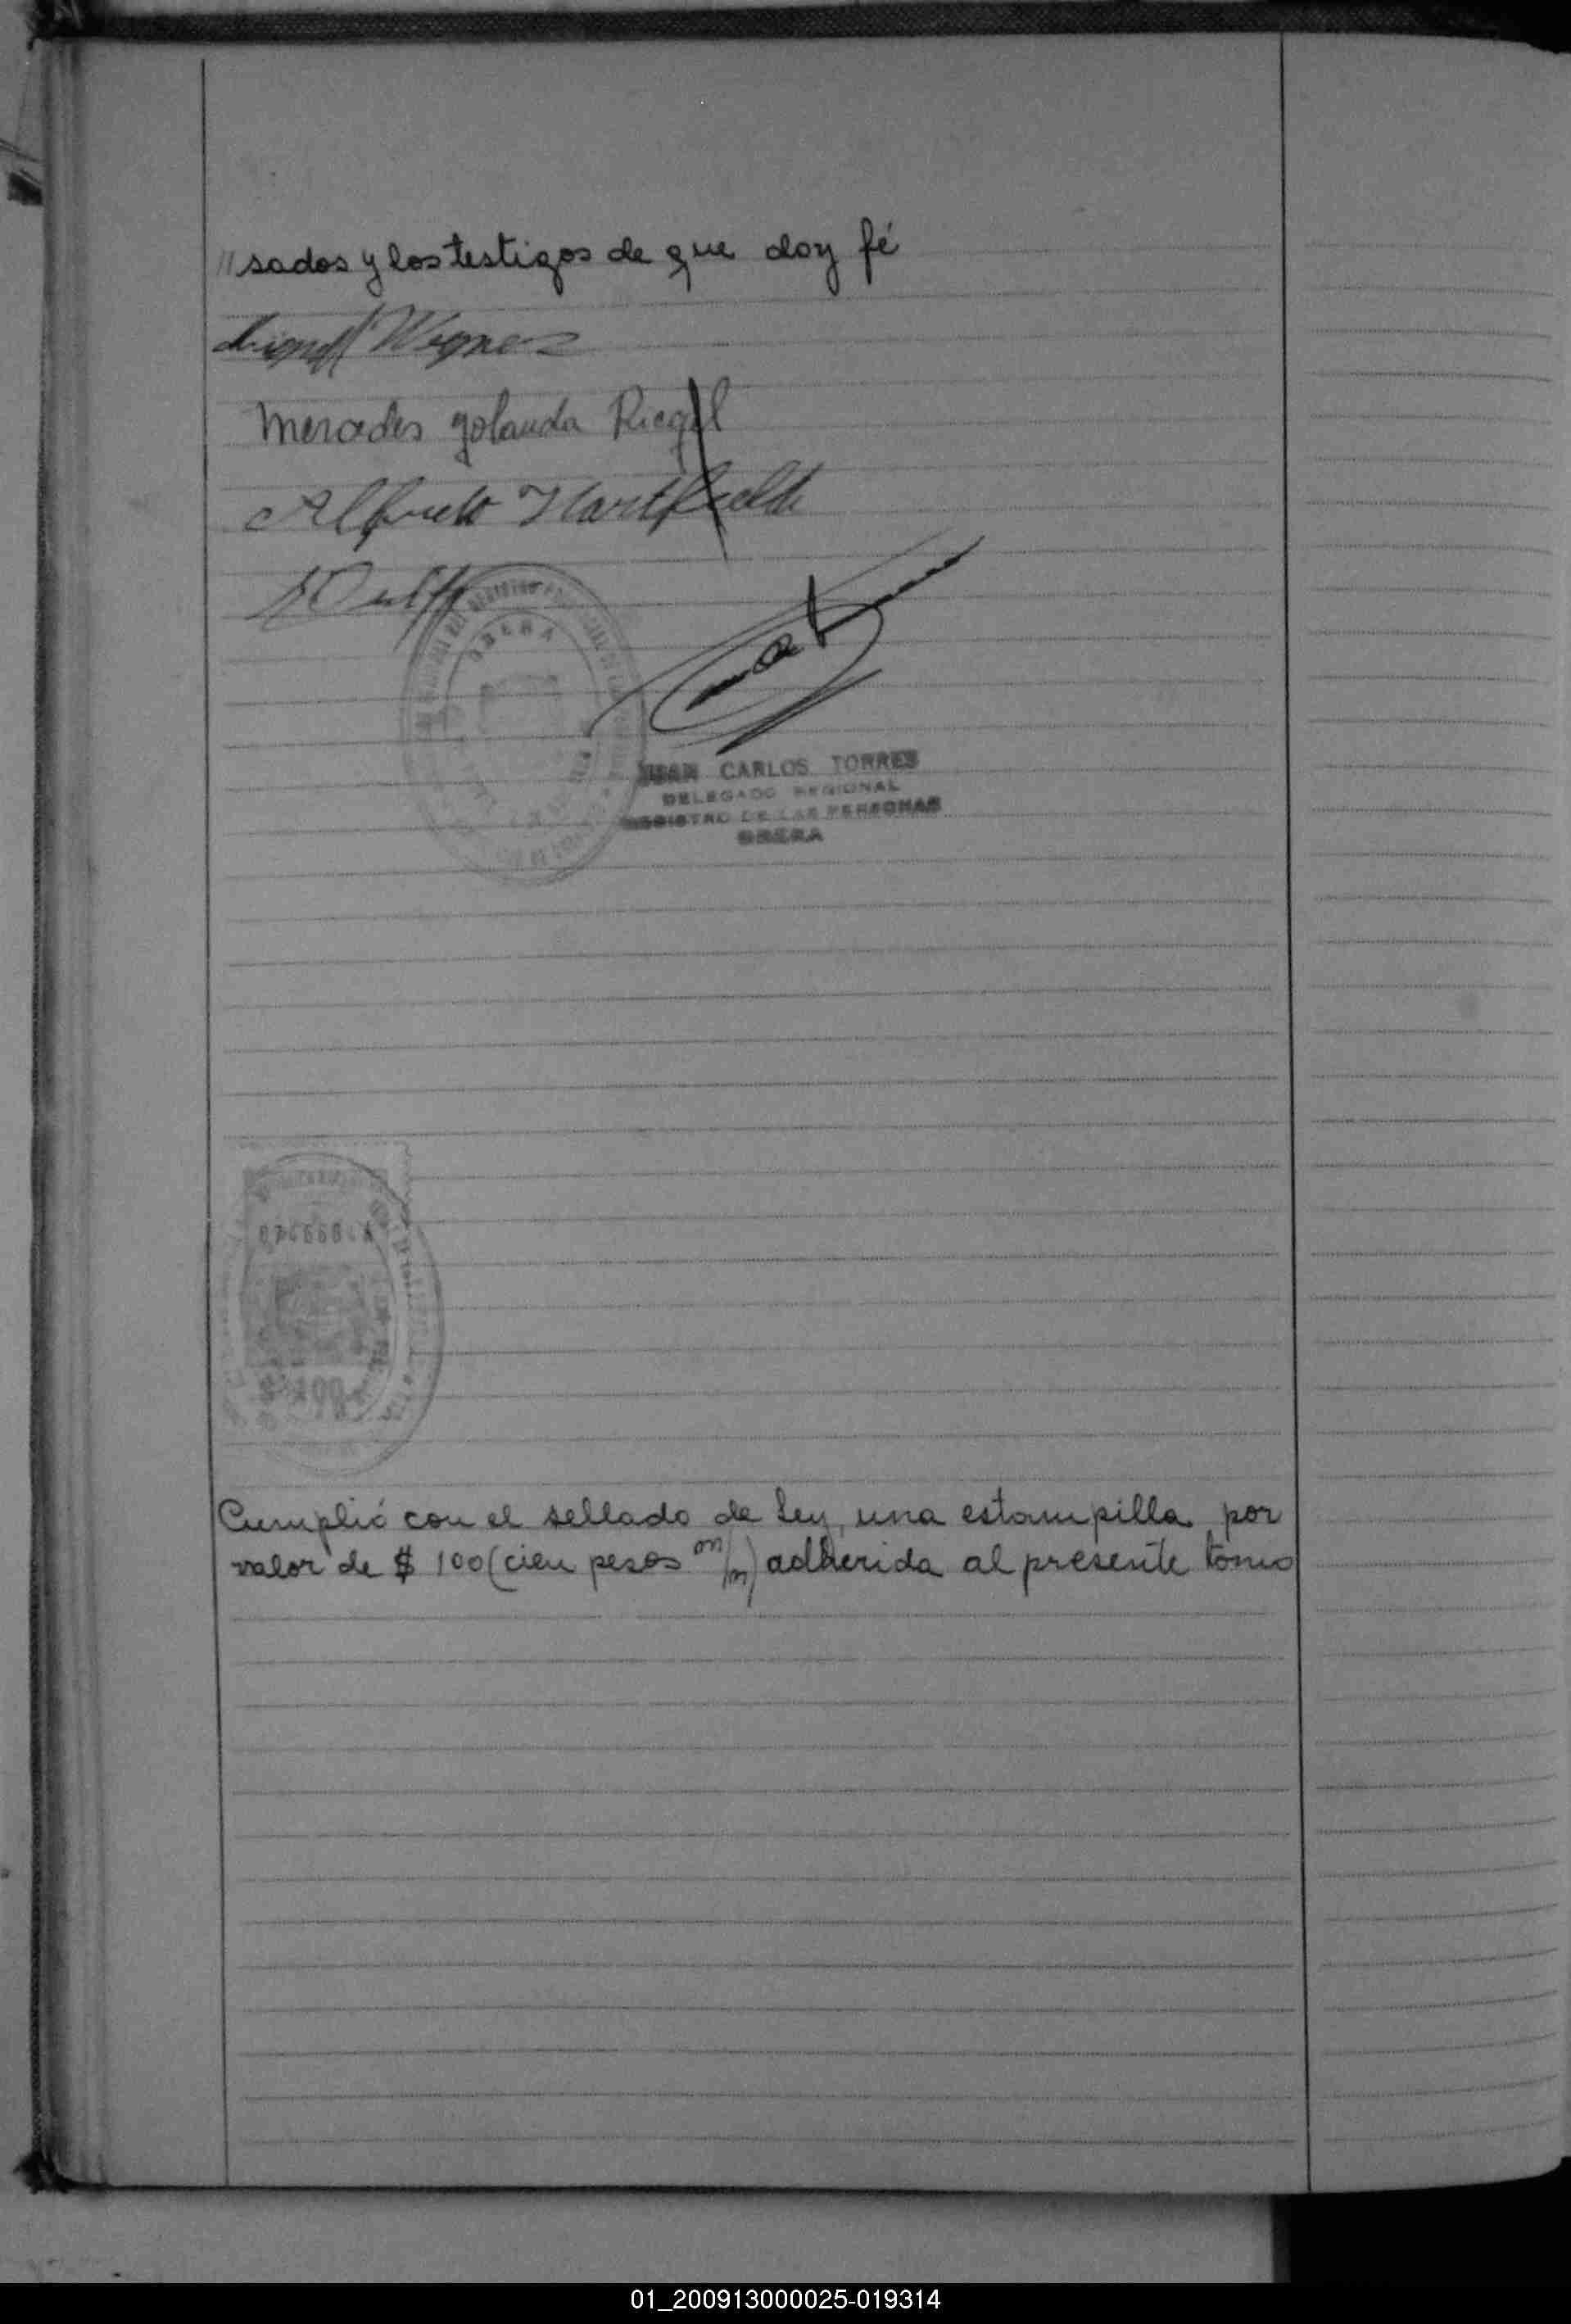 // sados y los testigos de que doy fé
Wegner
Mercedes Yolanda Riegel
Alfredo
OBERA
JUAN CARLOS TORRES
DELEGADO REGIONAL
REGISTRO DE LAS PERSONAS
OBERA
$ 100
Cumplió con el sellado de Ley, una estampilla por
valor de $ 100 (cien pesos m/m) adherida al presente tomo
01_200913000025-019314